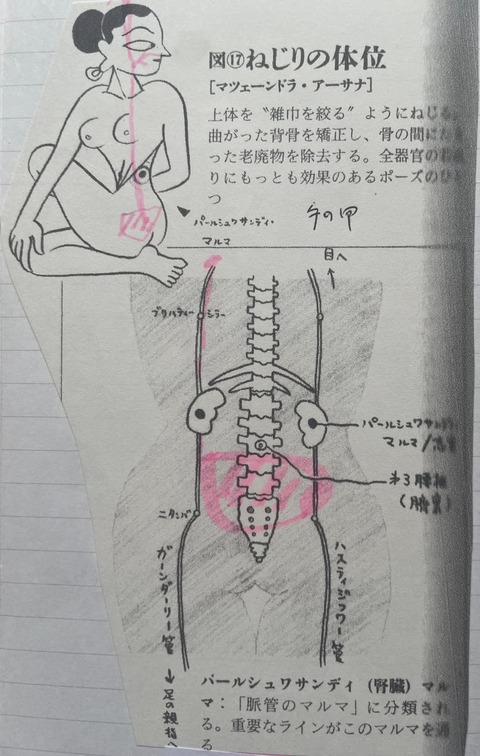 図⑰ねじりの体位
[マツェーンドラ・アーサナ]
上体を〝雑巾を絞る〟ようにねじる。
曲がった背骨を矯正し、骨の間に
った老廃物を除去する。全器官の
りにもっとも効果のあるポーズのひと
つ
パールシュワサンディ・
マルマ
手の甲
目へ
ブリハティー
シラー
パールシュワサンディ
マルマ/
第3腰椎
(臍裏)
ニタンバ
ガーンダーリー管
→足の親指へ
ハスティジフワー管
パールシュワサンディ(腎臓)マル
マ:「脈管のマルマ」に分類され
る。重要なラインがこのマルマを通
る